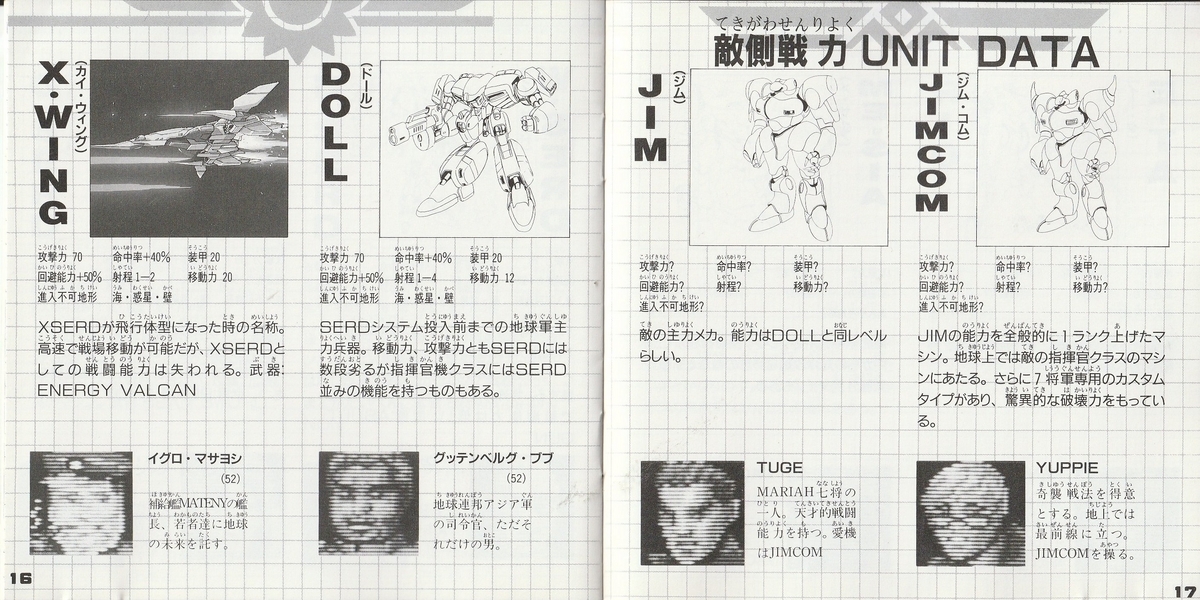 X・WING
(カイ・ウィング)
攻撃力 70 命中率+40% 装甲 20
回避能力+50% 射程1―2 移動力 20
進入不可地形 海・惑星・壁
XSERDが飛行体型になった時の名称。
高速で戦場移動が可能だが、XSERDと
しての戦闘能力は失われる。武器:
ENERGY VALCAN
イグロ・マサヨシ
(52)
補給艦MATENYの艦
長、若者達に地球
の未来を託す。
16
DOLL
(ドール)
攻撃力 70 命中率+40% 装甲 20
回避能力+50% 射程1―4 移動力 12
進入不可地形 海・惑星・壁
SERDシステム投入前までの地球軍主
力兵器。移動力、攻撃力ともSERDには
数段劣るが指揮官機クラスにはSERD
並みの機能を持つものもある。
グッテンベルグ・ブブ
(52)
地球連邦アジア軍
の司令官、ただそ
れだけの男。
てきがわせんりよく
敵側戦力 UNIT DATA
JIM
(ジム)
攻撃力? 命中率? 装甲?
回避能力? 射程? 移動力?
進入不可地形?
敵の主力メカ。能力はDOLLと同レベル
らしい。
TUGE
MARIAH七将の
一人。天才的戦闘
能力を持つ。愛機
はJIMCOM
JIMCOM
(ジム・コム)
攻撃力? 命中率? 装甲?
回避能力? 射程? 移動力?
進入不可地形?
JIMの能力を全般的に1ランク上げたマ
シン。地球上では敵の指揮官クラスのマシ
ンにあたる。さらに7将軍専用のカスタム
タイプがあり、驚異的な破壊力をもってい
る。
YUPPIE
奇襲戦法を得意
とする。地上では
最前線に立つ。
JIMCOMを操る。
17